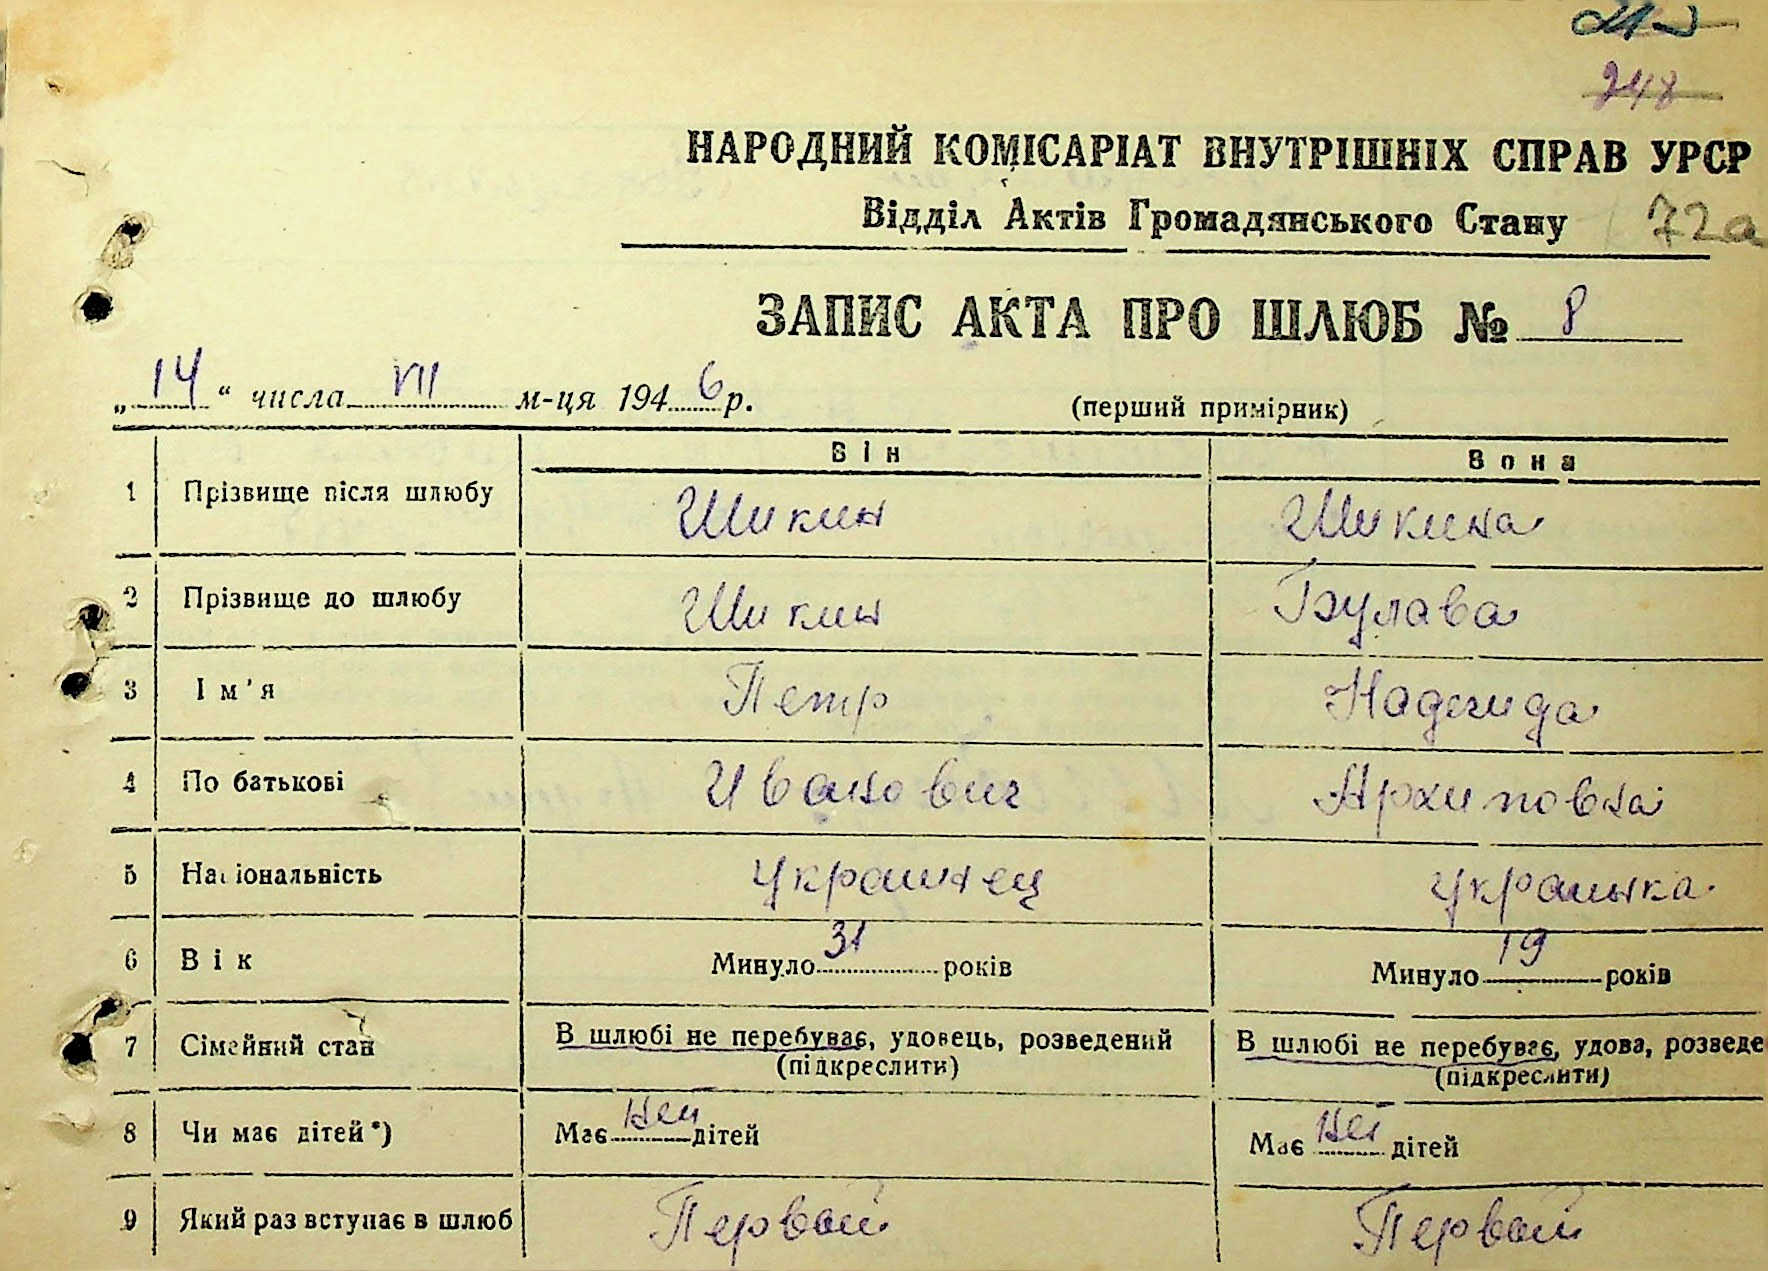 248
НАРОДНИЙ КОМІСАРІАТ ВНУТРІШНІХ СПРАВ УРСР
Відділ Актів Громадянського Стану 72а
ЗАПИС АКТА ПРО ШЛЮБ № 8
„14“ числа VII м-ця 1946 р. (перший примірник)
Він Вона
1 Прізвище після шлюбу Шикин Шикина
2 Прізвище до шлюбу Шикин Булава
3 Ім'я Петр Надежда
4 По батькові Иванович Архиповна
5 Національність украинец украинка
6 Вік Минуло 31 років Минуло 19 років
7 Сімейний стан В шлюбі не перебуває, удовець, розведений В шлюбі не перебуває, удова, розведе
(підкреслити) (підкреслити)
8 Чи має дітей*) Має нет дітей Має нет дітей
9 Який раз вступає в шлюб Первый Первый